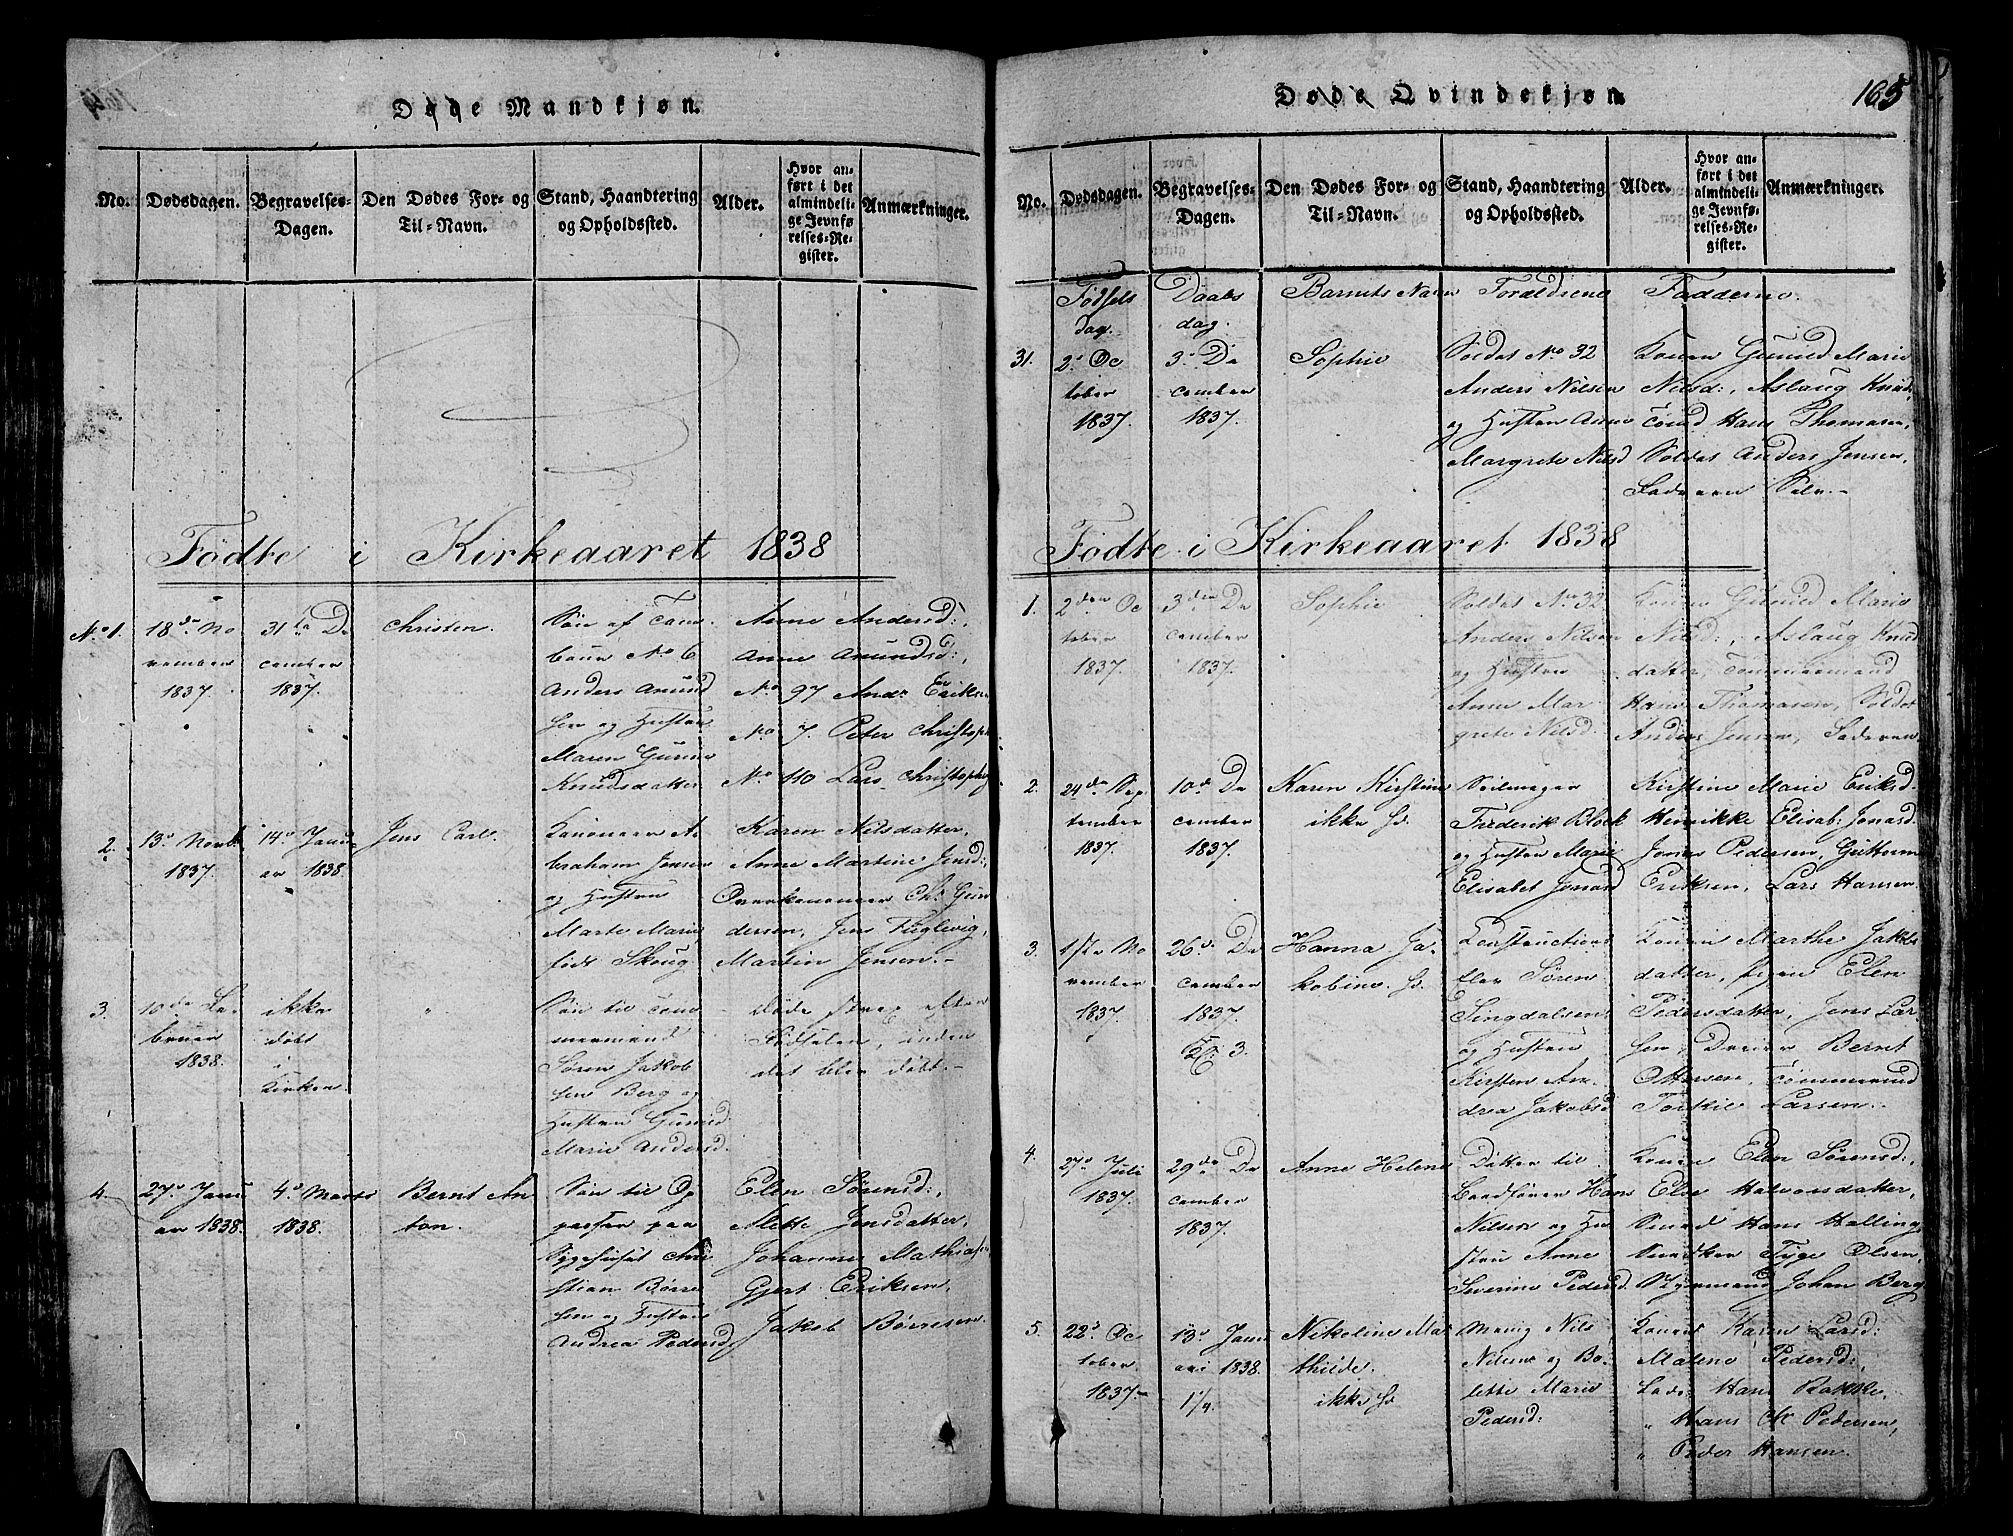 Døde Mandkjøn.
No.
Dødsdagen.
Begravelses-
Dagen.
Den Dødes For- og
Til-Navn.
Stand, Haandtering
og Opholdssted.
Alder.
Hvor an-
ført i det
almindeli-
ge Jevnfø-
relses-Re-
gister.
Anmærkninger.
Födte i Kirkeaaret 1838
No 1.
18de No
vember
1837.
31te De
cember
1837.
Christen.
Søn af Tam
bour No 6
Anders Amund
sen og Hustru
Maren Gurine
Knudsdatter
Anne Andersd:,
Anne Amundsd:,
No 97 Andr Erikn
No 7. Peter Christoph
No 110 Lars Christoph
2.
13de Novb.
1837.
14de Janu
ar 1838.
Jens Carl.
Kanoneer A
braham Jensen
og Hustru
Marte Marie
født Skoug
Karen Nilsdatter,
Anne Martine Jensd:,
Overkanoneer Ch: Gun
dersen, Jens Fuglevig,
Martin Jensen.-
3.
10de Fe
bruar
1838.
ikke
døbt
i
Kirken.
"
Søn til Tøm
mermand
Søren Jakob
sen Berg og
Hustru Gunild
Marie Andersd.
døde strax efter
Fødselen, inden
det blev døbt.-
4.
27de Janu
ar 1838.
4de Marts
1838.
Bernt An
ton.
Søn til Op
passer paa
Sygehuset Chri
stian Börre
sen og Hustru
Andrea Pedersd.
Elen Sörensd:,
Mette Jensdatter,
Johannes Mathias
Gjert Eriksen,
Jakob Börresen
Døde Qvindekjøn
165
No.
Dødsdagen.
Begravelses-
Dagen.
Den Dødes For- og
Til-Navn.
Stand, Haandtering
og Opholdssted.
Alder.
Hvor an-
ført i det
almindeli-
ge Jevnfø-
relses-Re-
gister.
Anmærkninger.
Fødsels
dag.
Daabs
dag.
Barnets Navn
Forældrene
Fadderne.
31.
2de Oc
tober
1837.
3de De
cember
1837.
Sophie
Soldat No 32
Anders Nilsen
og Hustru Anne
Margrete Nilsd
Konen Gunild Marie
Nilsd:, Aslaug Knud,
Tömd Hans Thomasen,
Soldat Anders Jensen,
Faderen Selv.-
Födte i Kirkeaaret 1838
1.
2den Oc
tober
1837.
3die De
cember
1837.
Sophie
Soldat No 32
Anders Nilsen
og Hustru
Anne Mar
grete Nilsd.
Konen Gunild Marie
Nilsd:, Aslaug Knuds
datter, Tömmermand
Hans Thomasen, Soldat
Anders Jensen, Faderen
2.
24de Sep
tember
1837.
10de De
cember
1837.
Karen Kirstine
ikke
Seilmager
Frederik Block
og Hustru Marie
Elisabet Jonasd
Kirstine Marie Eriksd.
Henrikke Elisab: Jonasd
Jonas Pedersen, Guttorm
Eriksen, Lars Hansen
3.
17de No
vember
1837.
26de De
cember
1837.
3.
Hanna Ja
kobine.
Constructions
Elev Sören
Singdalsen
og Hustru
Kirsten An
drea Jakobsd
Konen Marthe Jakobs
datter, Pigen Elen
Pedersdatter, Jens Lar
sen, Dreier Bernt
Ottersen, Tömmermd
Larsen.
4.
27de Juli
1837.
29de De
cember
1837.
Anne Helene
Datter til
Baadförer Hans
Nilsen og Hu
stru Anne
Severine Pedersd.
Konen Elen Sörensd:,
Else Halvorsdatter,
Smed Hans Halling,
Snedker Tyge Olsen,
Styrmand Johan Berg
5.
22de Oc
tober
1837.
13de Janu
ari 1838.
1/4.
Nikoline Ma
thilde.
ikke
Menig Nils
Nilsen og Bo
lette Marie
Pedersd:
Konen Karen Larsd:
Malene Pedersd:,
Hans Bakke,
" Hans Chr Pedersen,
" Peder Hansen.